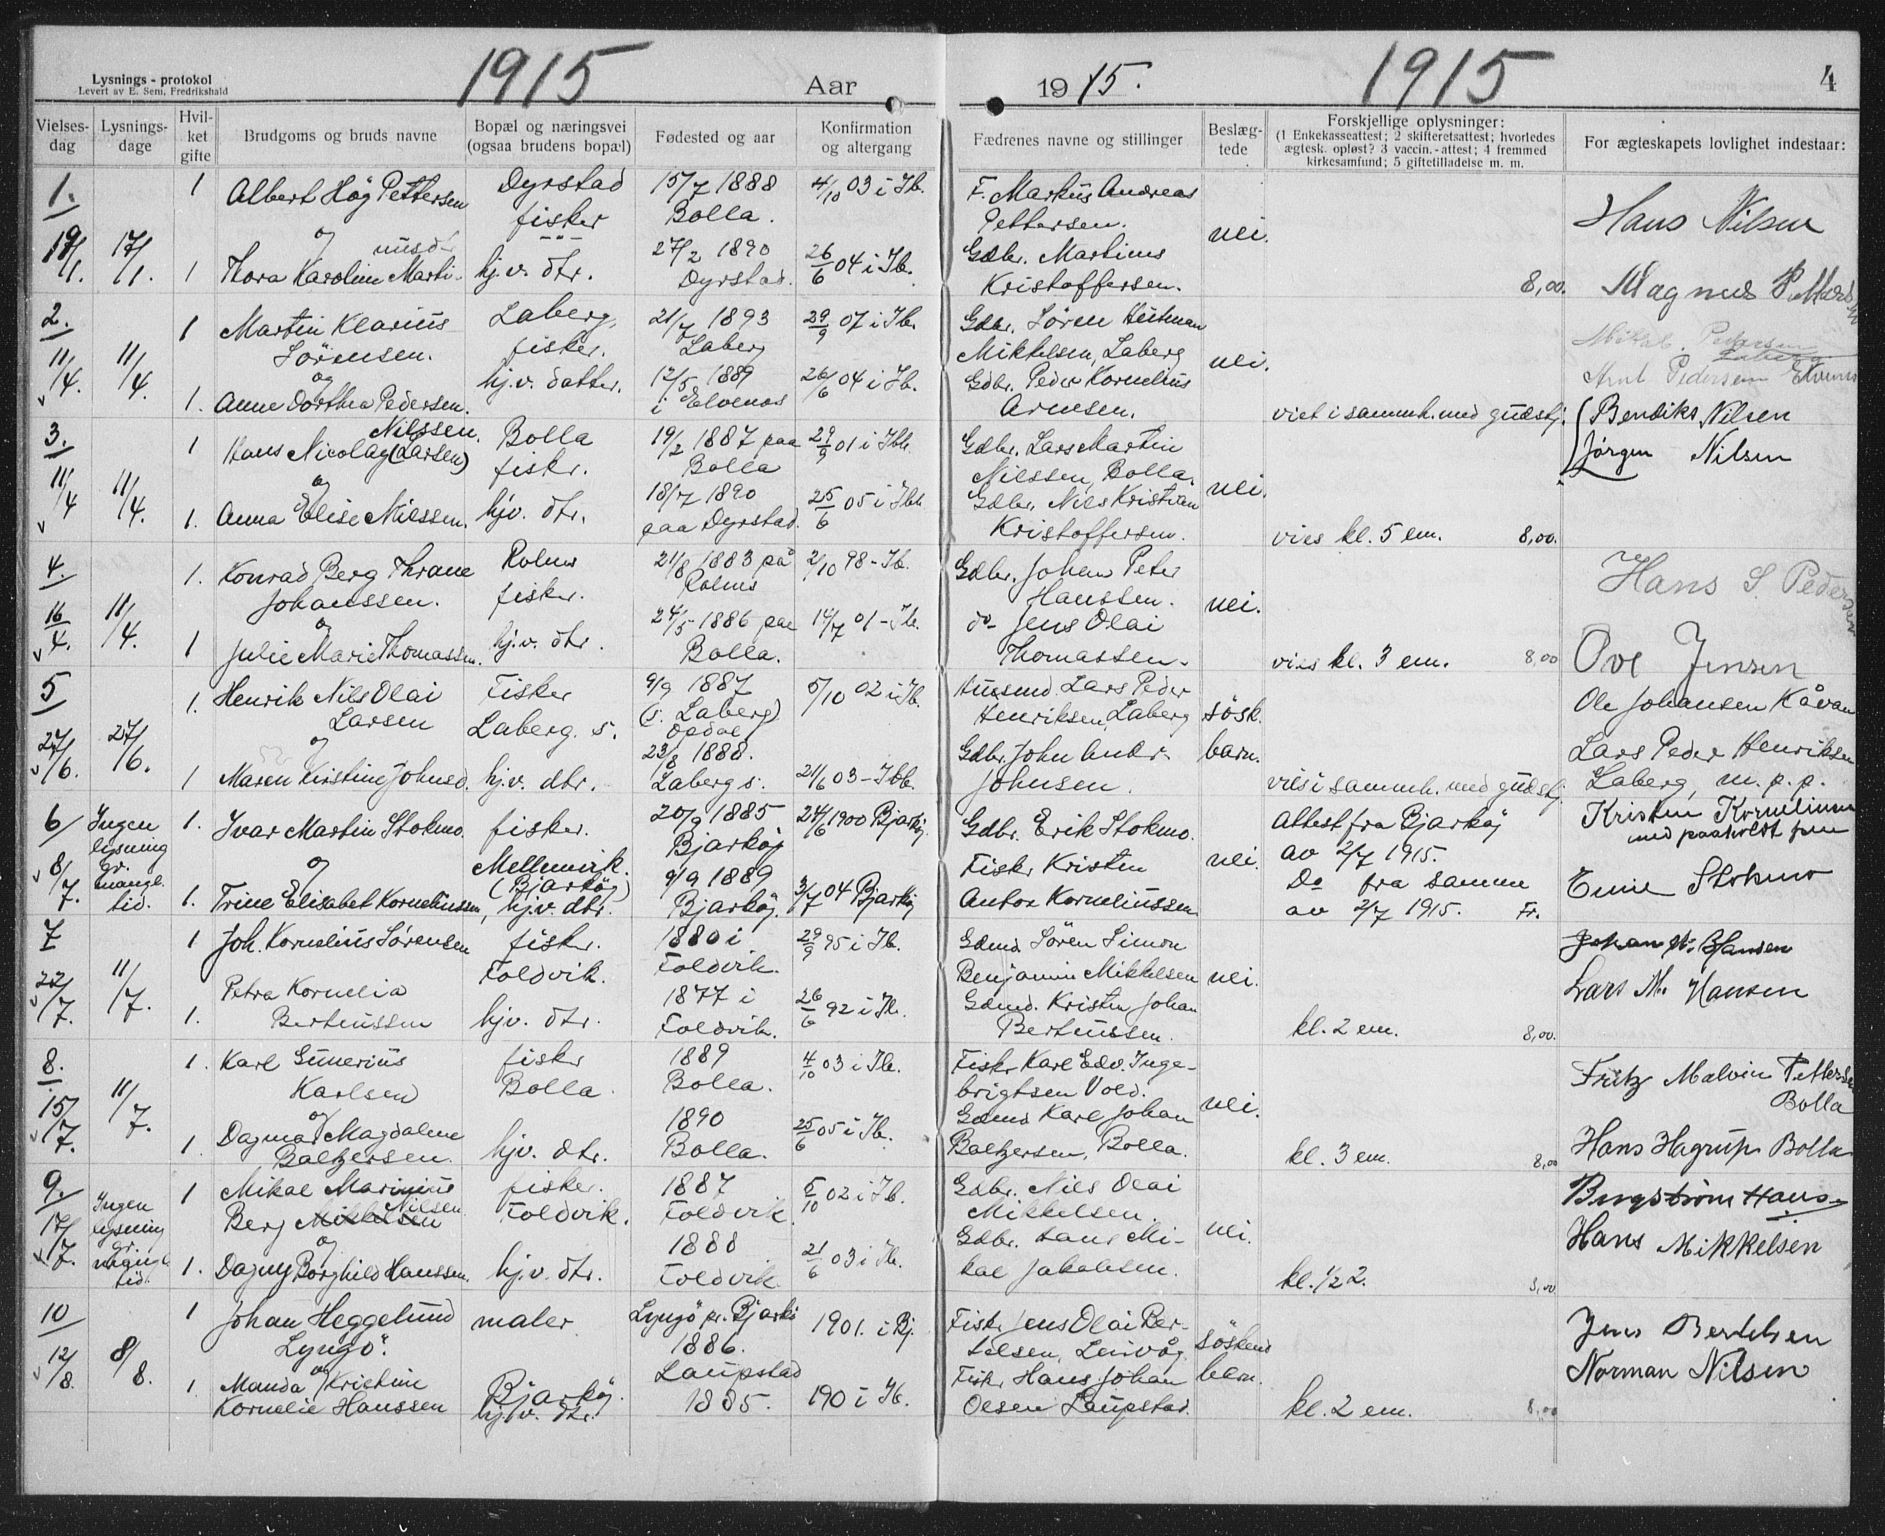 1915
Aar
1915.
1915
4
Lysnings-protokol
Levert av E. Sem, Fredrikshald
Vielses-dag
Lysnings-dage
Hvil-ket gifte
Brudgoms og bruds navne
Bopæl og næringsvei (ogsaa brudens bopæl)
Fødested og aar
Konfirmation og altergang
Fædrenes navne og stillinger
Beslæg-tede
Forskjellige oplysninger:
(1 Enkekasseattest; 2 skifteretsattest; hvorledes
ægtesk. opløst? 3 vaccin.-attest; 4 fremmed
kirkesamfund; 5 giftetilladelse m. m.
For ægteskapets lovlighet indestaar:
1. 1 Albert Høg Pettersen Dyrstad fisker 15/7 1888 Bolla. 4/10 03 i Ib. F. Markus Andreas Pettersen. nei. Hans Nilsen
19/1. 17/1. og
1 Thora Karoline Marti-nusdr hj.v. dtr. 27/2 1890 Dyrstad. 26/6 04 i Ib. Gdbr. Martinus Kristoffersen. 8,00. Magnus
2. 1 Martin Klarius Sörensen. Laberg, fisker. 21/7 1893 Laberg 29/9 07 i Ib. Gdbr. Sören Mikkelsen, Laberg nei. Mikal Pedersen Laberg
11/4. 11/4. og
1. Anne Dorthea Pedersen. hj.v. datter. 12/5 1889 i Elvenes 26/6 04 i Ib. Gdbr. Peder Kornelius Arnesen. viet i sammh. med gudstj. Arnt Pedersen
3. 1 Hans Nicolay (Larsen) Nilssen. Bolla fisker. 19/2 1887 paa Bolla 29/9 01 i Ibb. Gdbr. Lars Martin Nilssen, Bolla. nei. Bendiks Nilsen
Jørgen Nilsen
11/4 11/4. og
1. Anna Elise Nilssen. hjv. dtr. 18/7 1890 paa Dyrstad. 25/6 05 i Ibb. Gdbr. Nils Kristian Kristoffersen. vies kl. 5 em. 8,00.
4. 1. Konrad Berg Thrane Johanssen. Rolnes fisker. 21/8 1883 på Rolnes 2/10 98 - Ib. Gdbr. Johan Peter Hanssen. nei. Hans S. Pedersen
16/4. 11/4. og
1 Julie Marie Thomassen. hj.v. dtr. 24/5 1886 paa Bolla. 14/7 01 - Ib. do- Jens Olai Thomassen. vies kl. 3 em. 8,00 Ove Jensen
5 1. Henrik Nils Olai Larsen Fisker Laberg. s. 9/9 1887 (i. Laberg) 5/10 02 i Ib. Husmd. Lars Peder Henriksen, Laberg sösk. barn. Ole Johansen Kåvan
27/6. 27/6. og
1 Maren Kirstine Johnsd. hj.v. dtr. 23/8 1888. Laberg s. 21/6 03 - Ibb. Gdbr. John Andr. Johnsen. vies i sammh. med gudstj. Lars Peder Henriksen
Laberg, m. p. p.
6/ Ingen lysning gr. mangl. tid. 1. Ivar Martin Stokmo. fisker. Mellemvik. (Bjarköy) 20/9 1885 Bjarköy 24/6 1900 Bjarköy Gdbr. Erik Stokmo. nei. Attest fra Bjarköy av 2/7 1915. Kristen Korneliussen
med paaholdt pen
8/7. og
1. Trine Elisabet Korneliussen, hj.v. dtr. 9/9 1889 Bjarköy. 3/7 04 Bjarköy Fisker Kristen Anton Korneliussen Do fra samme av 2/7 1915. Fr. Stokmo
7 1 Joh. Kornelius Sørensen fisker. Foldvik. 1880 i Foldvik. 29/9 95 i Ib. Gdmd. Sören Simon Benjamin Mikkelsen nei. Johan
22/7. 11/7.
1. Petra Kornelia Berteussen hjv. dtr. 1877 i Foldvik. 26/6 92 i Ib. Gdmd. Kristen Johan Berteussen. kl. 2 em. 8,00. Lars M. Hansen
8. 1. Karl Gunerius Karlsen fisker Bolla. 1889 Bolla. 4/10 03 i Ib. Fisker Karl Edv. Inge-brigtsen Vold. nei. Fritz Malvin Pettersen
Bolla
15/7. 11/7. og
1. Dagmar Magdalene Baltzersen. hjv. dtr. 1890 Bolla. 25/6 05 i Ib. Gdmd Karl Johan Baltzersen, Bolla. kl. 3 em. 8,00 Hans Hagrup Bolla
9. Ingen lysning gr. mangl. tid. 1 Mikal Marinius Berg Mikkelsen Nilsen fisker. Foldvik. 1887 Foldvik. 5/10 02 i Ib. Gdbr. Nils Olai Mikkelsen. nei.
17/7. og
1. Dagny Borghild Hanssen. hj.v. dtr. 1888 Foldvik 21/6 03 i Ib. Gdbr. Hans Mi-kal Jakobsen. kl. 1/2 2. Hans Mikkelsen
10 1 Johan Heggelund Lyngö. maler Lyngö pr. Bjarkö 1886. 1901. i Bj. Fisker Jens Olai Ber-telsen, Leirvåg. söskend barn. Jens Bertelsen
12/8. 8/8. og
1. Manda Kristine Kornelie Hanssen Bjarköy. hj.v. dtr. Laupstad 1885. 190 i Ib. Fisker Hans Johan Olsen Laupstad. kl. 2 em. 8,00 Norman Nilsen